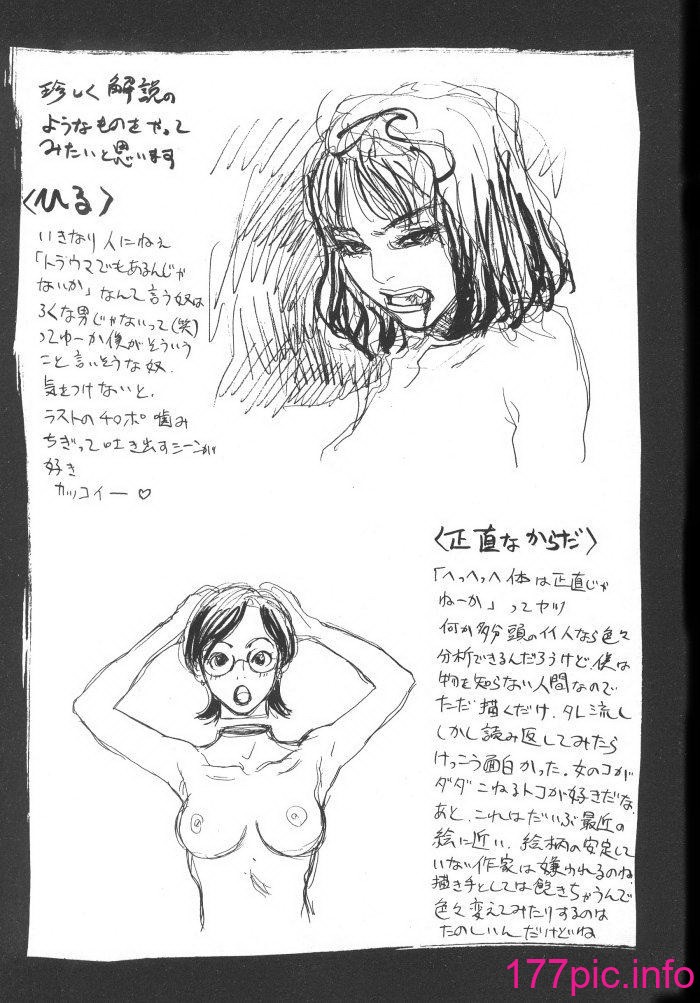 珍しく解説の
ようなものをやって
みたいと思います
〈ひる〉
いきなり人にねぇ
「トラウマでもあるんじゃ
ないか」なんて言う奴は
ろくな男じゃないって(笑)
ってゆーか僕がそういう
こと言いそうな奴.
気をつけないと.
ラストのチ○ポ噛み
ちぎって吐き出すシーンが
好き
カッコイー♡
〈正直なからだ〉
「へっへっへ体は正直じゃ
ねーか」ってヤツ
何か多分頭のイイ人なら色々
分析できるんだろうけど、僕は
物を知らない人間なので
ただ描くだけ、タレ流し
しかし読み返してみたら
けっこう面白かった。女のコが
ダダこねるトコが好きだな.
あと、これはだいぶ最近の
絵に近い、絵柄の安定して
いない作家は嫌われるのね
描き手としては飽きちゃうんで
色々変えてみたりするのは
たのしいんだけどね
177pic.info